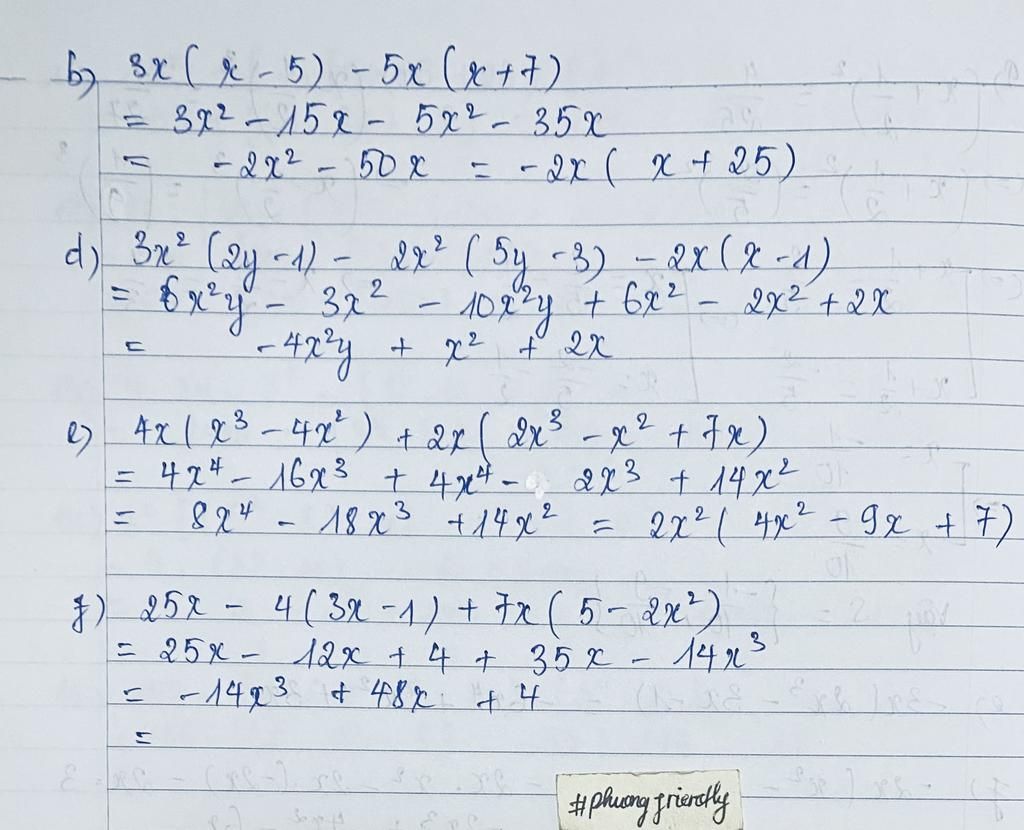 b) 3x( x - 5) - 5x (x+7)
= 3x² - 15x - 5x² - 35x
= -2x² - 50x = -2x( x + 25)
d) 3x² (2y -1) - 2x² ( 5y -3) - 2x(x -1)
= 6x²y - 3x² - 10x²y + 6x² - 2x² + 2x
= -4x²y + x² + 2x
e) 4x( x³ - 4x² ) + 2x( 2x³ - x² + 7x)
= 4x⁴ - 16x³ + 4x⁴ - 2x³ + 14x²
= 8x⁴ - 18x³ +14x² = 2x²( 4x² - 9x + 7)
f) 25x - 4(3x -1) + 7x( 5 - 2x²)
= 25x - 12x + 4 + 35x - 14x³
= -14x³ + 48x + 4
=
#phuong friendly